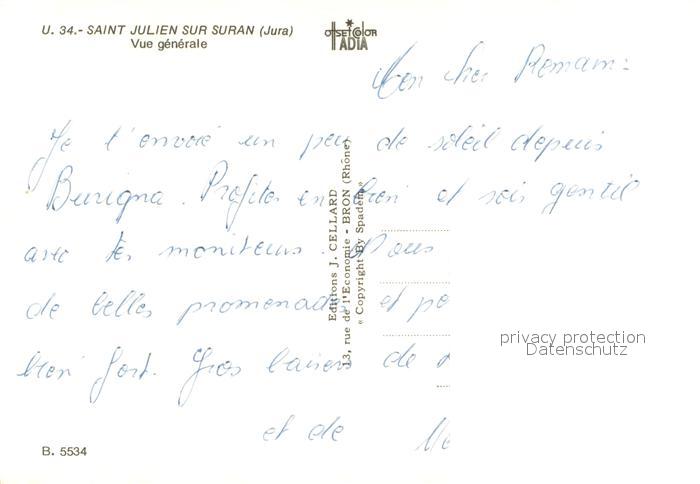 U. 34.- SAINT JULIEN SUR SURAN (Jura)
Vue générale
OFFSET COLOR
IADIA
Mon cher Romain:
Je t'envoie un peu de soleil depuis
Buvigna. Profites en bien et sois gentil
avec tes moniteurs. Nous
de belles promenades et pe
bien fort. Gros baisers de
et de Me
Editions J. CELLARD
13, rue de l'Economie - BRON (Rhône)
« Copyright By Spadem »
privacy protection
Datenschutz
B. 5534